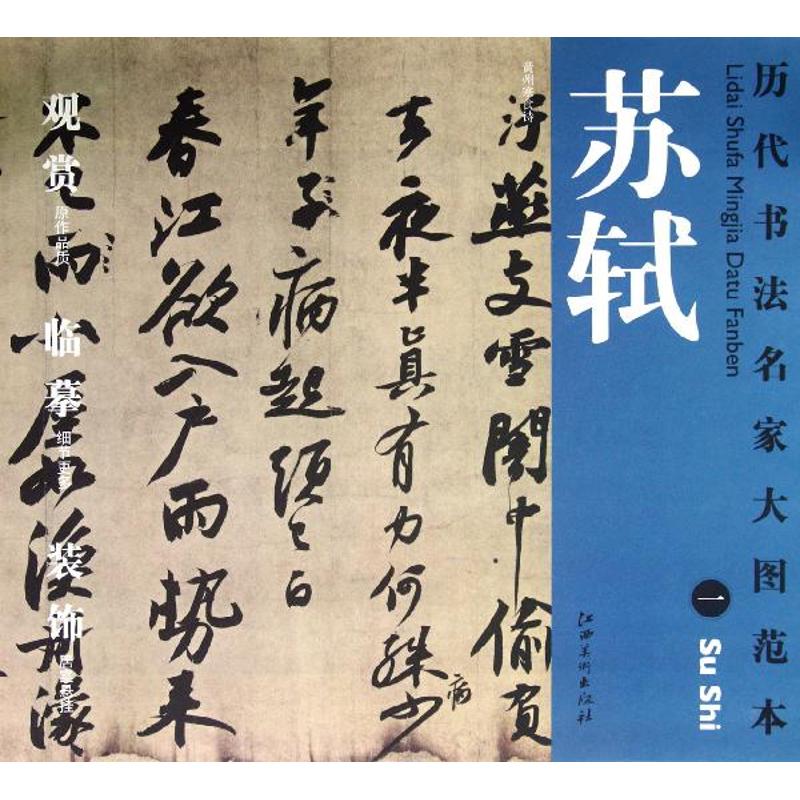 历代书法名家大图范本
Lidai Shufa Mingjia Datu Fanben
苏轼
一
Su Shi
江西美术出版社
黄州寒食诗
汙燕支雪闇中偷負
去夜半真有力何殊少
病
年子病起須已白
春江欲入戶雨勢來
不已雨小屋如漁舟濛
观赏 原作品质
临摹 细节更多
装饰 居室悬挂